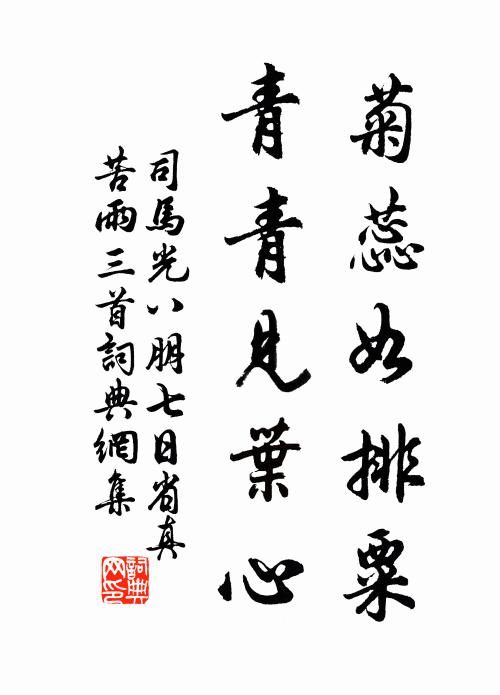 菊蕊如排粟
青青見葉心
司馬光八明七日省真
苦雨三首詞典網集
詞典網印